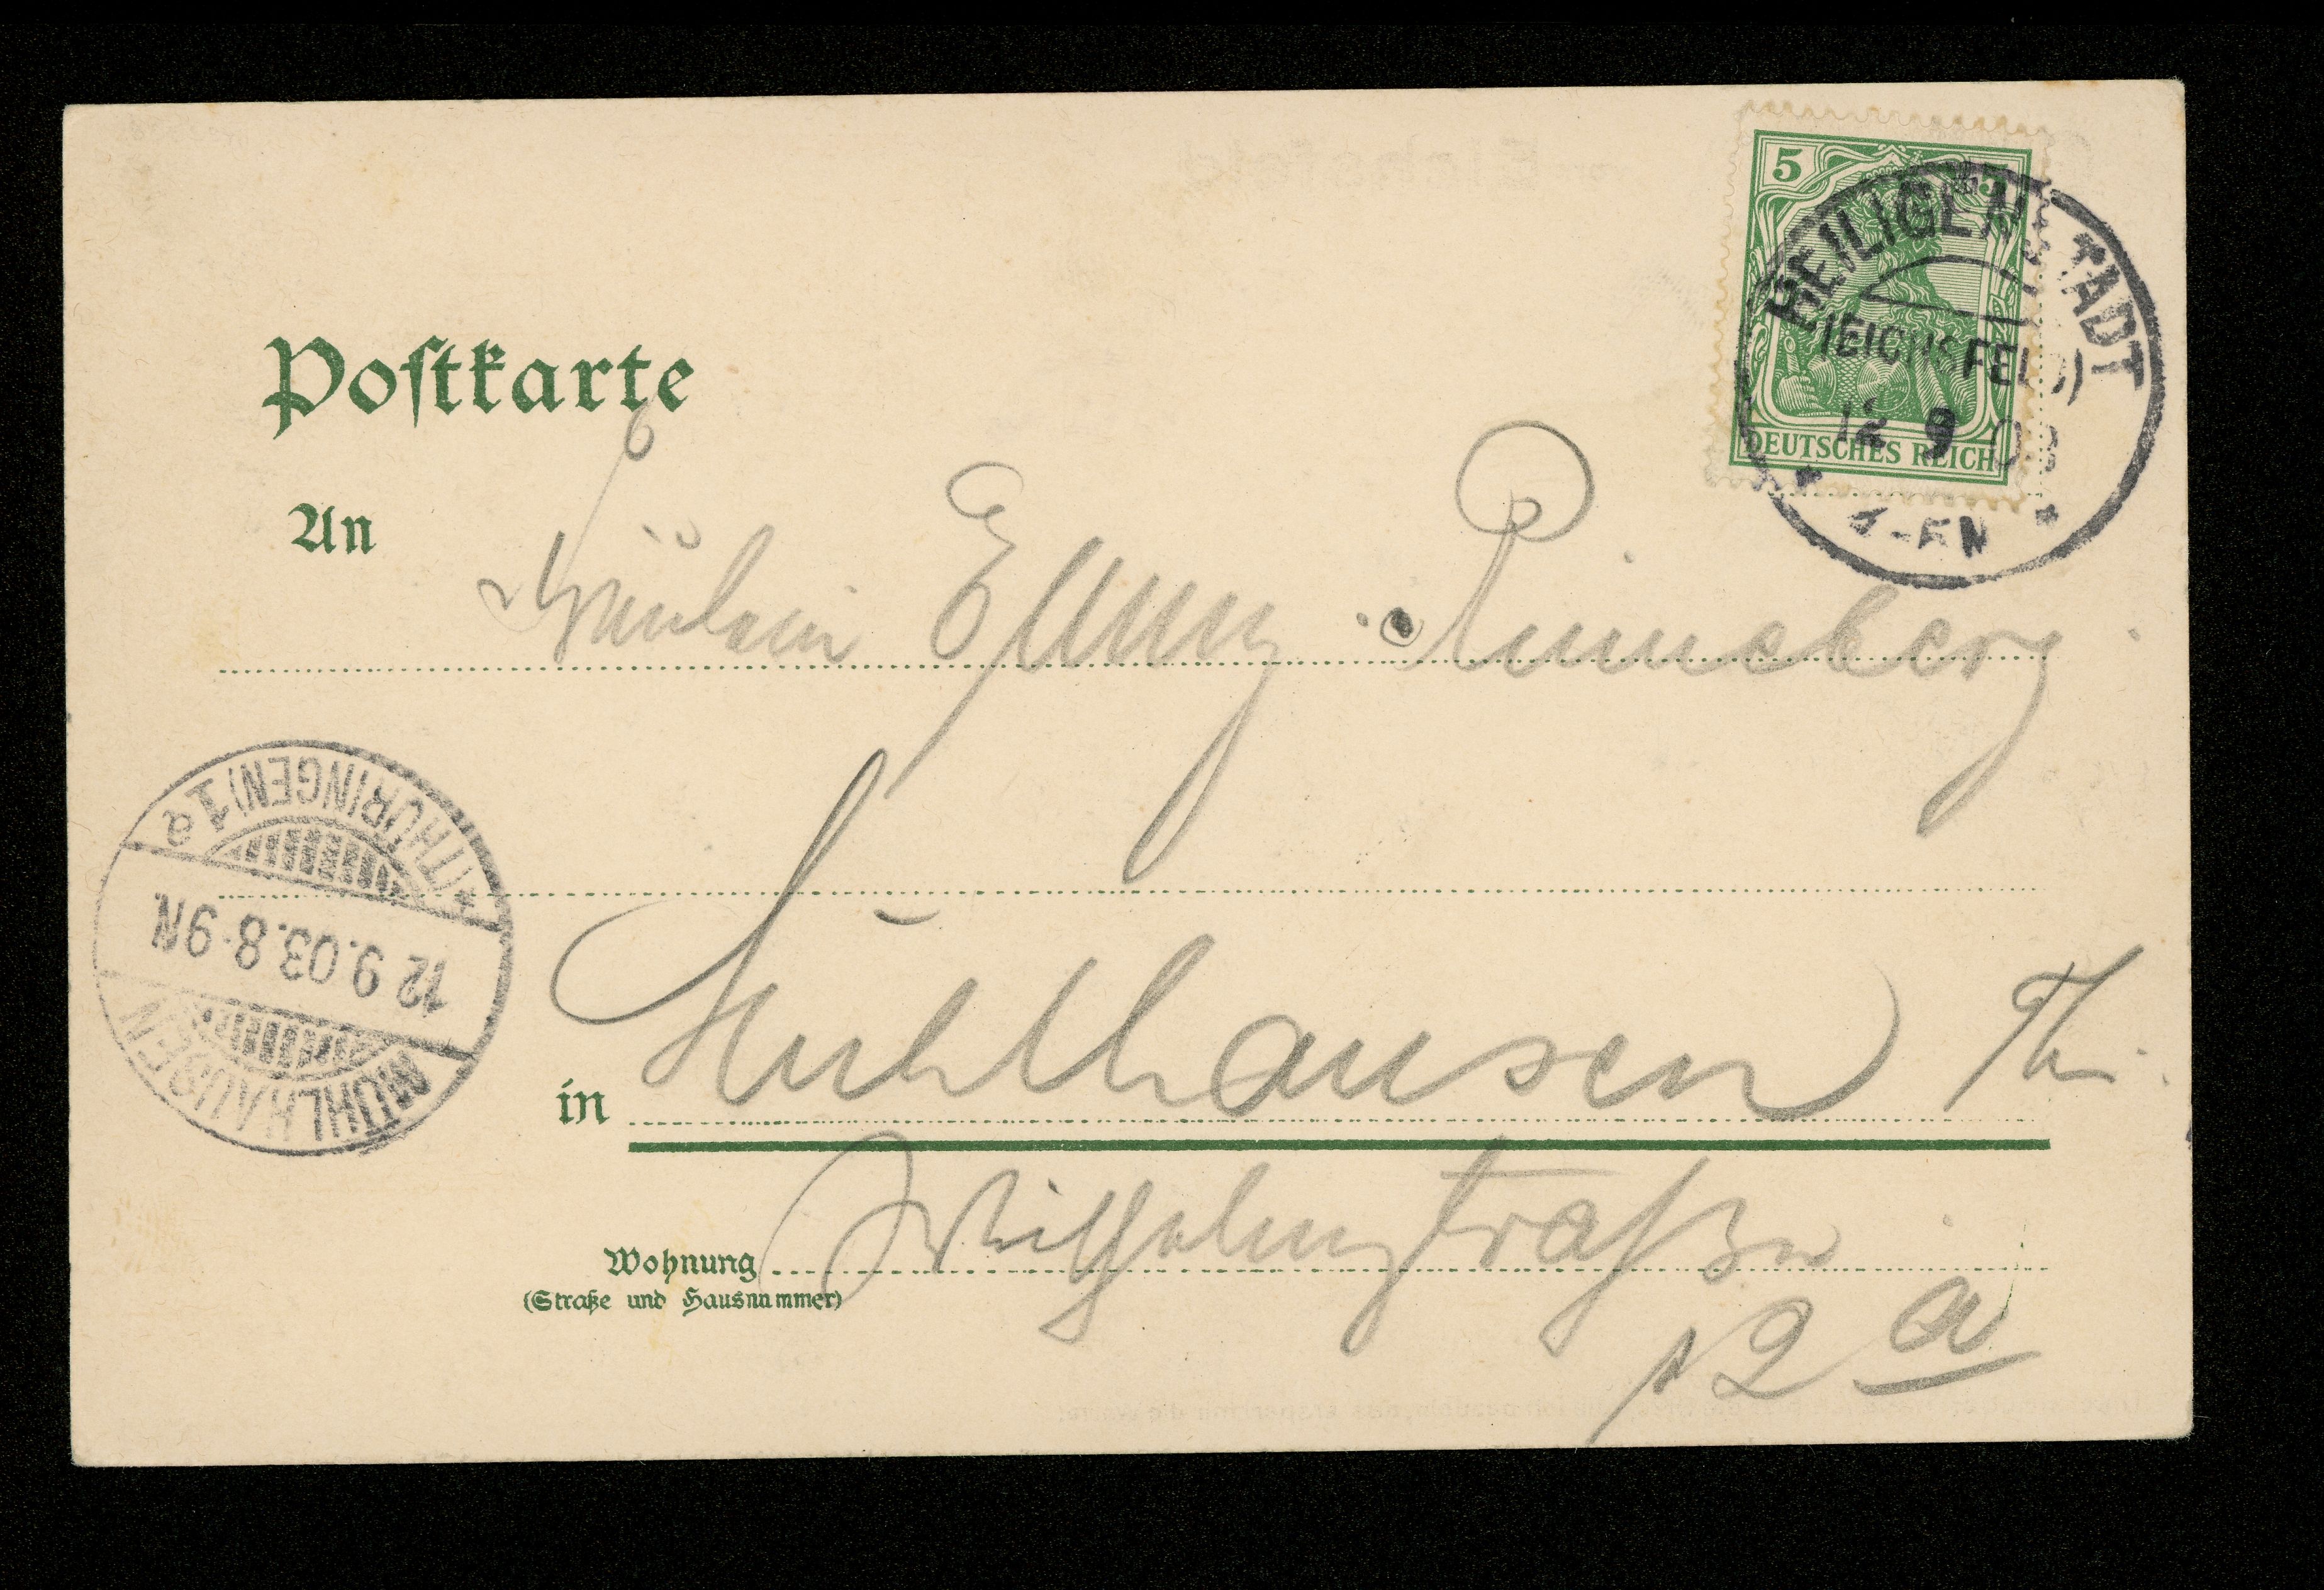 Postkarte
5 5
DEUTSCHES REICH
HEILIGENSTADT
(EICHSFELD)
12 9 03
An
Fräulein Emmy Rinneberg
(THÜRINGEN) 1a
12 9.03. 8-9N.
MÜHLHAUSEN
in Mühlhausen Th.
Wohnung Wilhelmstraße
(Straße und Hausnummer)
12 a